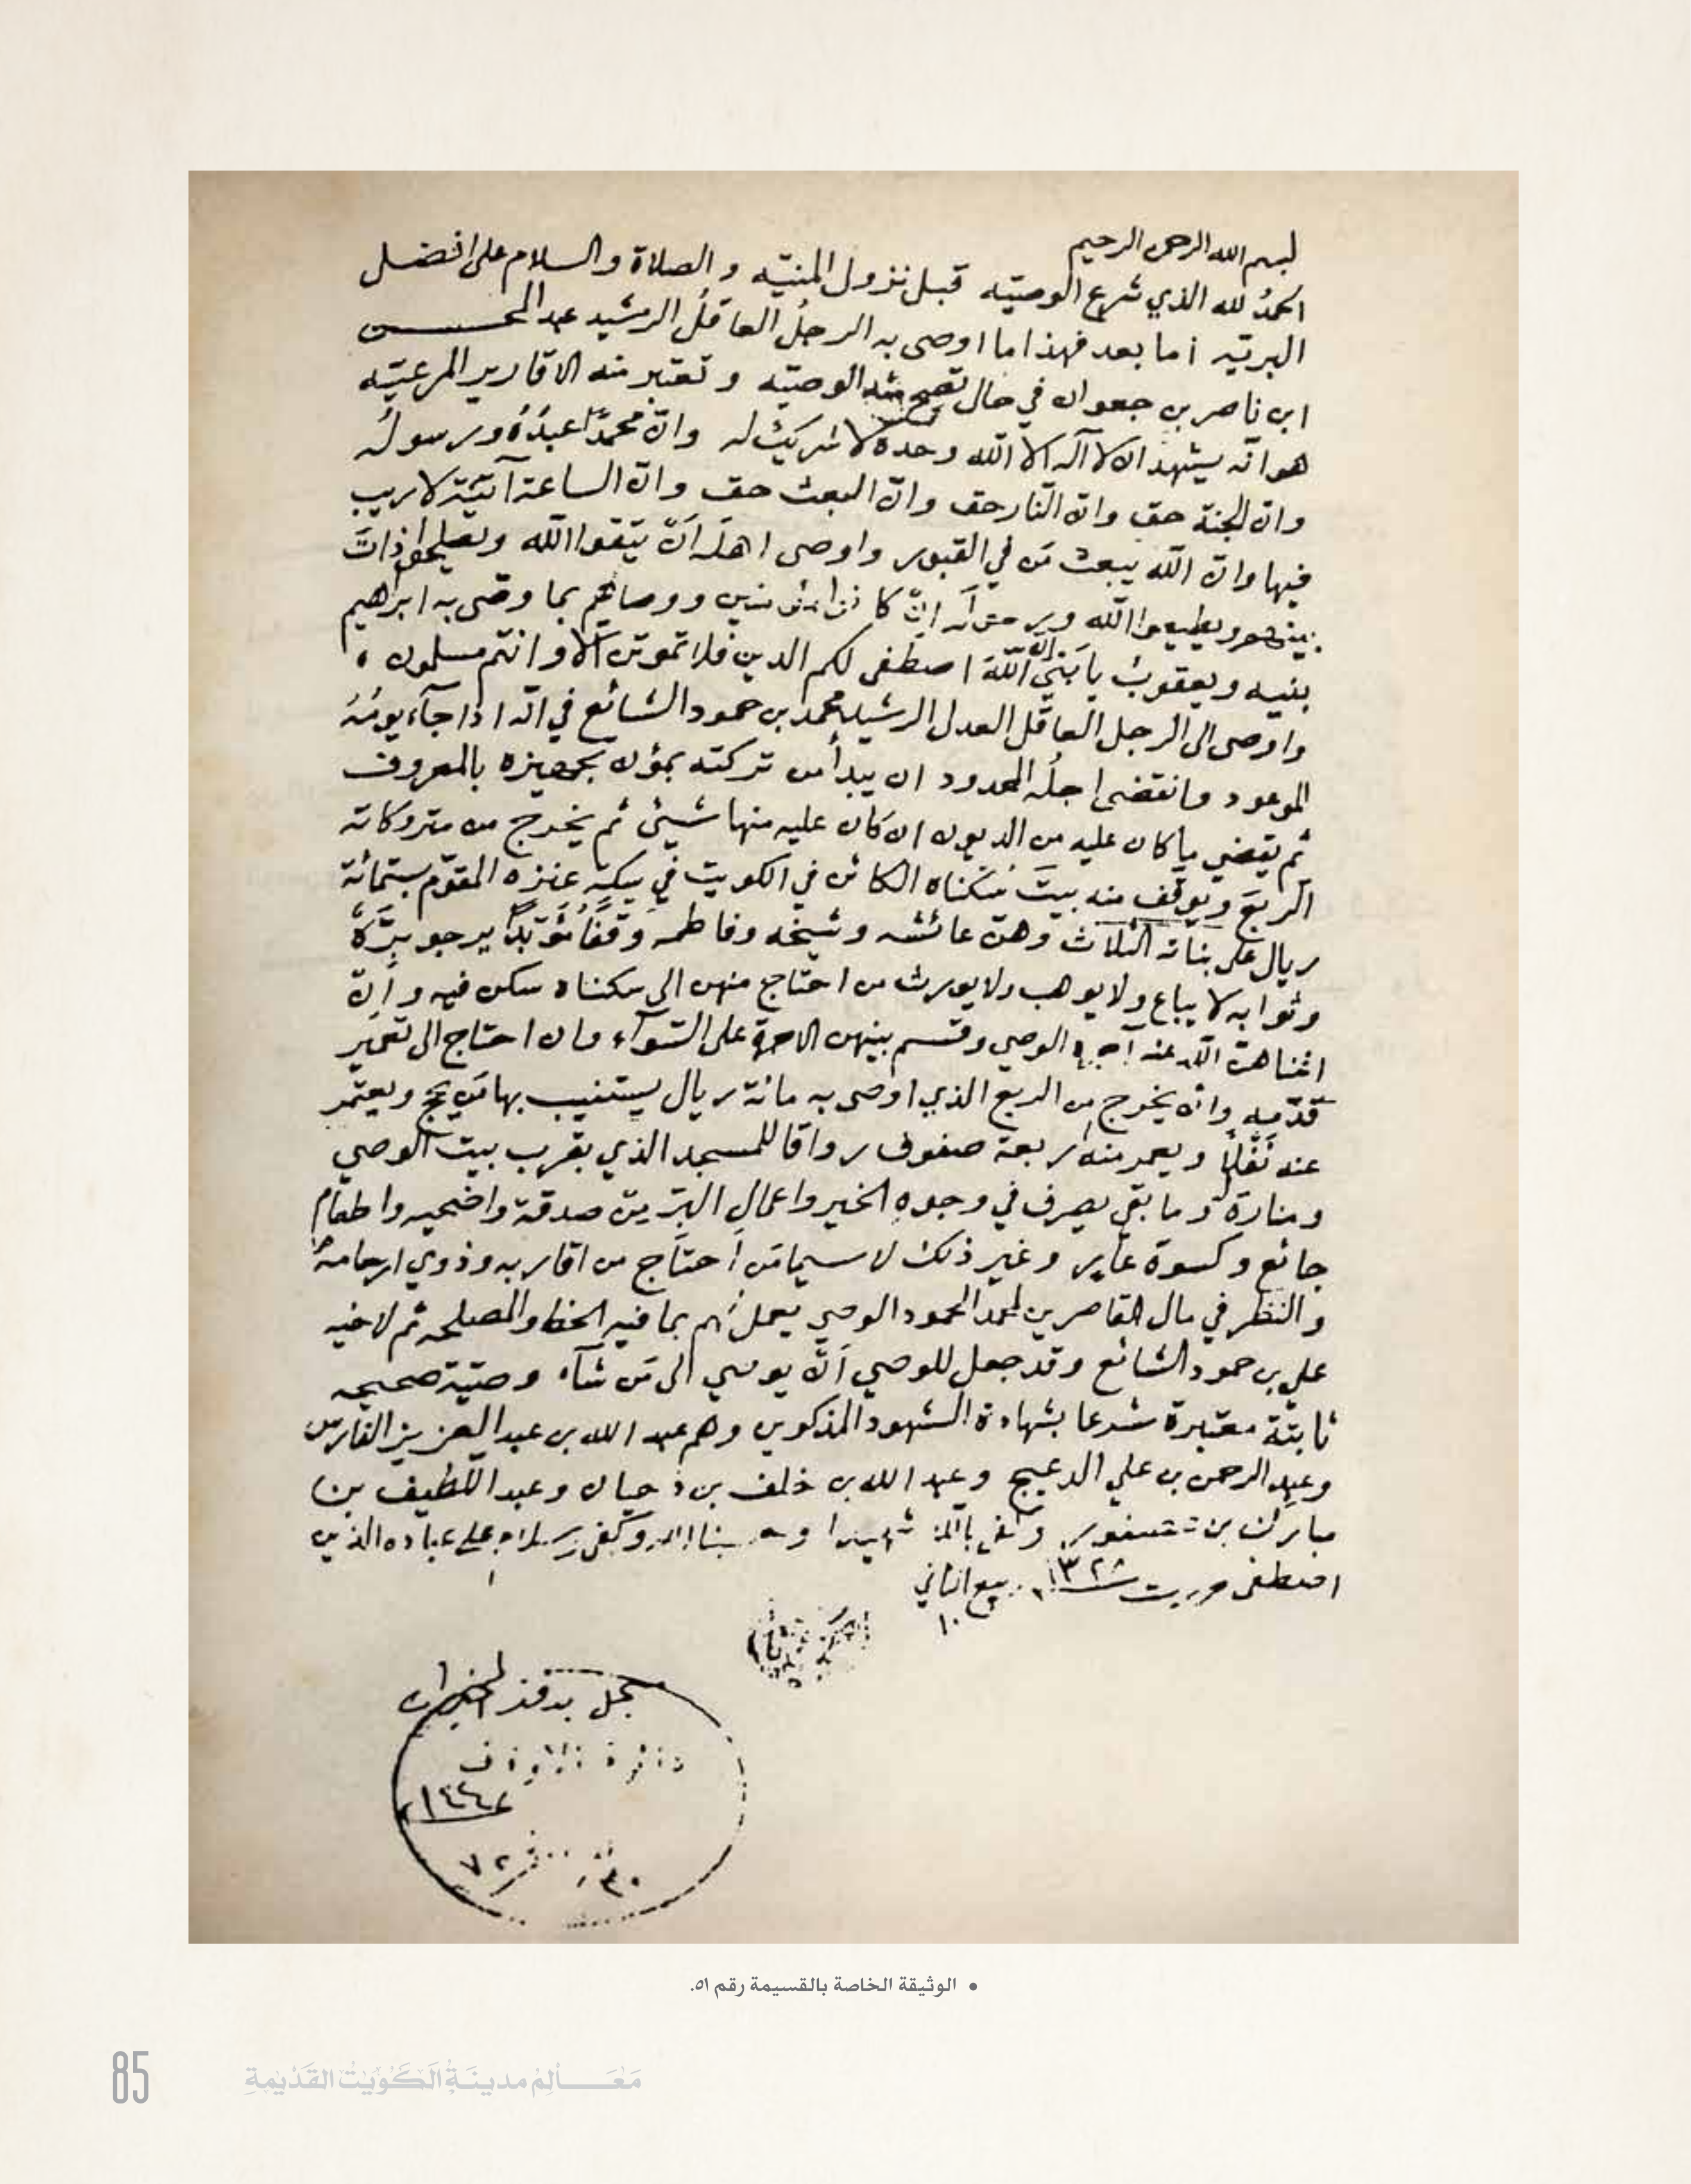 بسم الله الرحمن الرحيم
الحمدُ لله الذي شرع الوصيّه قبل نزول المنيّه والصلاة والسلام على افضل
البريّه اما بعد فهذا ما اوصى به الرجلُ العاقلُ الرشيد عبد المحسن
ابن ناصر بن جعوان في حال تصح منه الوصيّه وتعتبر منه الاقارير المرعيّه
هو انّه يشهد ان لا آله الا الله وحده لا شريك له وانّ محمدًا عبدُهُ ورسولُه
وان الجنة حق وانّ النّار حق وانّ البعث حق وانّ الساعة آتيَة لا ريب
فيها وانّ الله يبعث مَن في القبور واوصى اهلَه انّ يتقوا الله ويصلحوا ذاتَ
بينهم ويطيعوا الله ورسوله انّ كانوا مؤمنين ووصاهم بما وصّى به ابراهيم
بنيه ويعقوبُ يا بَنيّ انّ اللّهَ اصطفى لكم الدين فلا تموتن الّا وانتم مسلمون ،
واوصى الى الرجل العاقل العدل الرشيد محمد بن حمود الشائع في انّه اذا جآء يومُهُ
الموعود وانقضى اجلُه المحدود ان يبدأ من تركته بمؤن تجهيزه بالمعروف
ثم يقضي ما كان عليه من الديون ان كان عليه منها شيئ ثم يخرج من متروكاته
الربعَ ويوقف منه بيتَ سُكناه الكائن في الكويت في سِكةِ عنزه المقوّم بستمائة
ريال على بناته الثلاث وهنّ عائشه وشيخه وفاطمه وقفًا مُؤَبّدًا يرجو بِرَّهُ
وثوابه لا يباع ولا يوهب ولا يورث من احتاج منهن الى سكناه سكن فيه وإنّ
اغناهنّ الله عنه الوصي وقسم بينهن الاجرة على السّوآء وان احتاج الى تعمير
قدّمه وانّ يخرج من الربع الذي اوصى به مائة ريال يستنيب بها مَن يحج ويعتمر
عنه نَفْلًا ويعمر منه اربعة صفوف رواقا للمسجد الذي بقرب بيت الوصي
ومنارة وما بقي يصرف في وجوهِ الخير واعمالِ البرّ مِن صدقة واضحيه واطعام
جائع وكسوة عارٍ وغير ذلك لا سيما مَن أحتَاج من اقاربه وذوي ارحامهِ
والنظر في مال القاصرين لمحمد الحمود الوصي يعمل لَهم بما فيه الحظ والمصلحه ثم لاخيه
علي بن حمود الشائع وقد جعل للوصي اَنّ يوصي الى مَن شآء وصيّة صحيحه
ثابتة معتبرة شرعا بشهادة الشهود المذكورين وهم عبد الله بن عبد العزيز الفارس
وعبد الرحمن بن علي الدعيج وعبد الله بن خلف بن دحيان وعبد اللّطيف بن
مبارك بن عصفور وكفى بالله شهيدا وحسبنا الله وكفى وسلام على عباده الذين
اصطفى حررت ١٣٢٨ ربيع الثاني
١٠
سجل بدفتر الخيرات
دائرة الاوقاف
٣٠ صفر ٧٢
• الوثيقة الخاصة بالقسيمة رقم ٥١.
85
مَعَـالِمْ مدينَةُ الكُوَيْتُ القَدْيمةِ